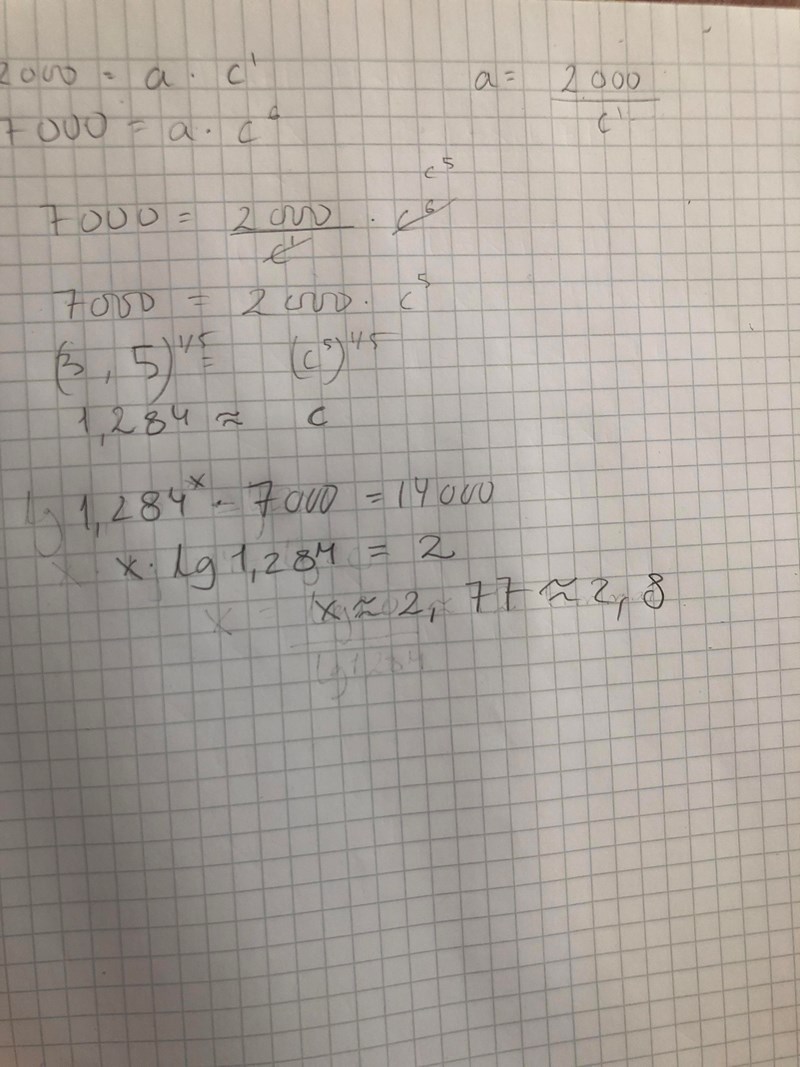 2000 = a · c¹ a = 2000/c¹
7000 = a · c⁶
7000 = 2000/c¹ · c⁶ c⁵
7000 = 2000 · c⁵
(3,5)^1/5 = (c⁵)^1/5
1,284 ≈ c
lg 1,284^x · 7000 = 14000
x · lg 1,284 = 2
x ≈ 2,77 ≈ 2,8
lg 1,284